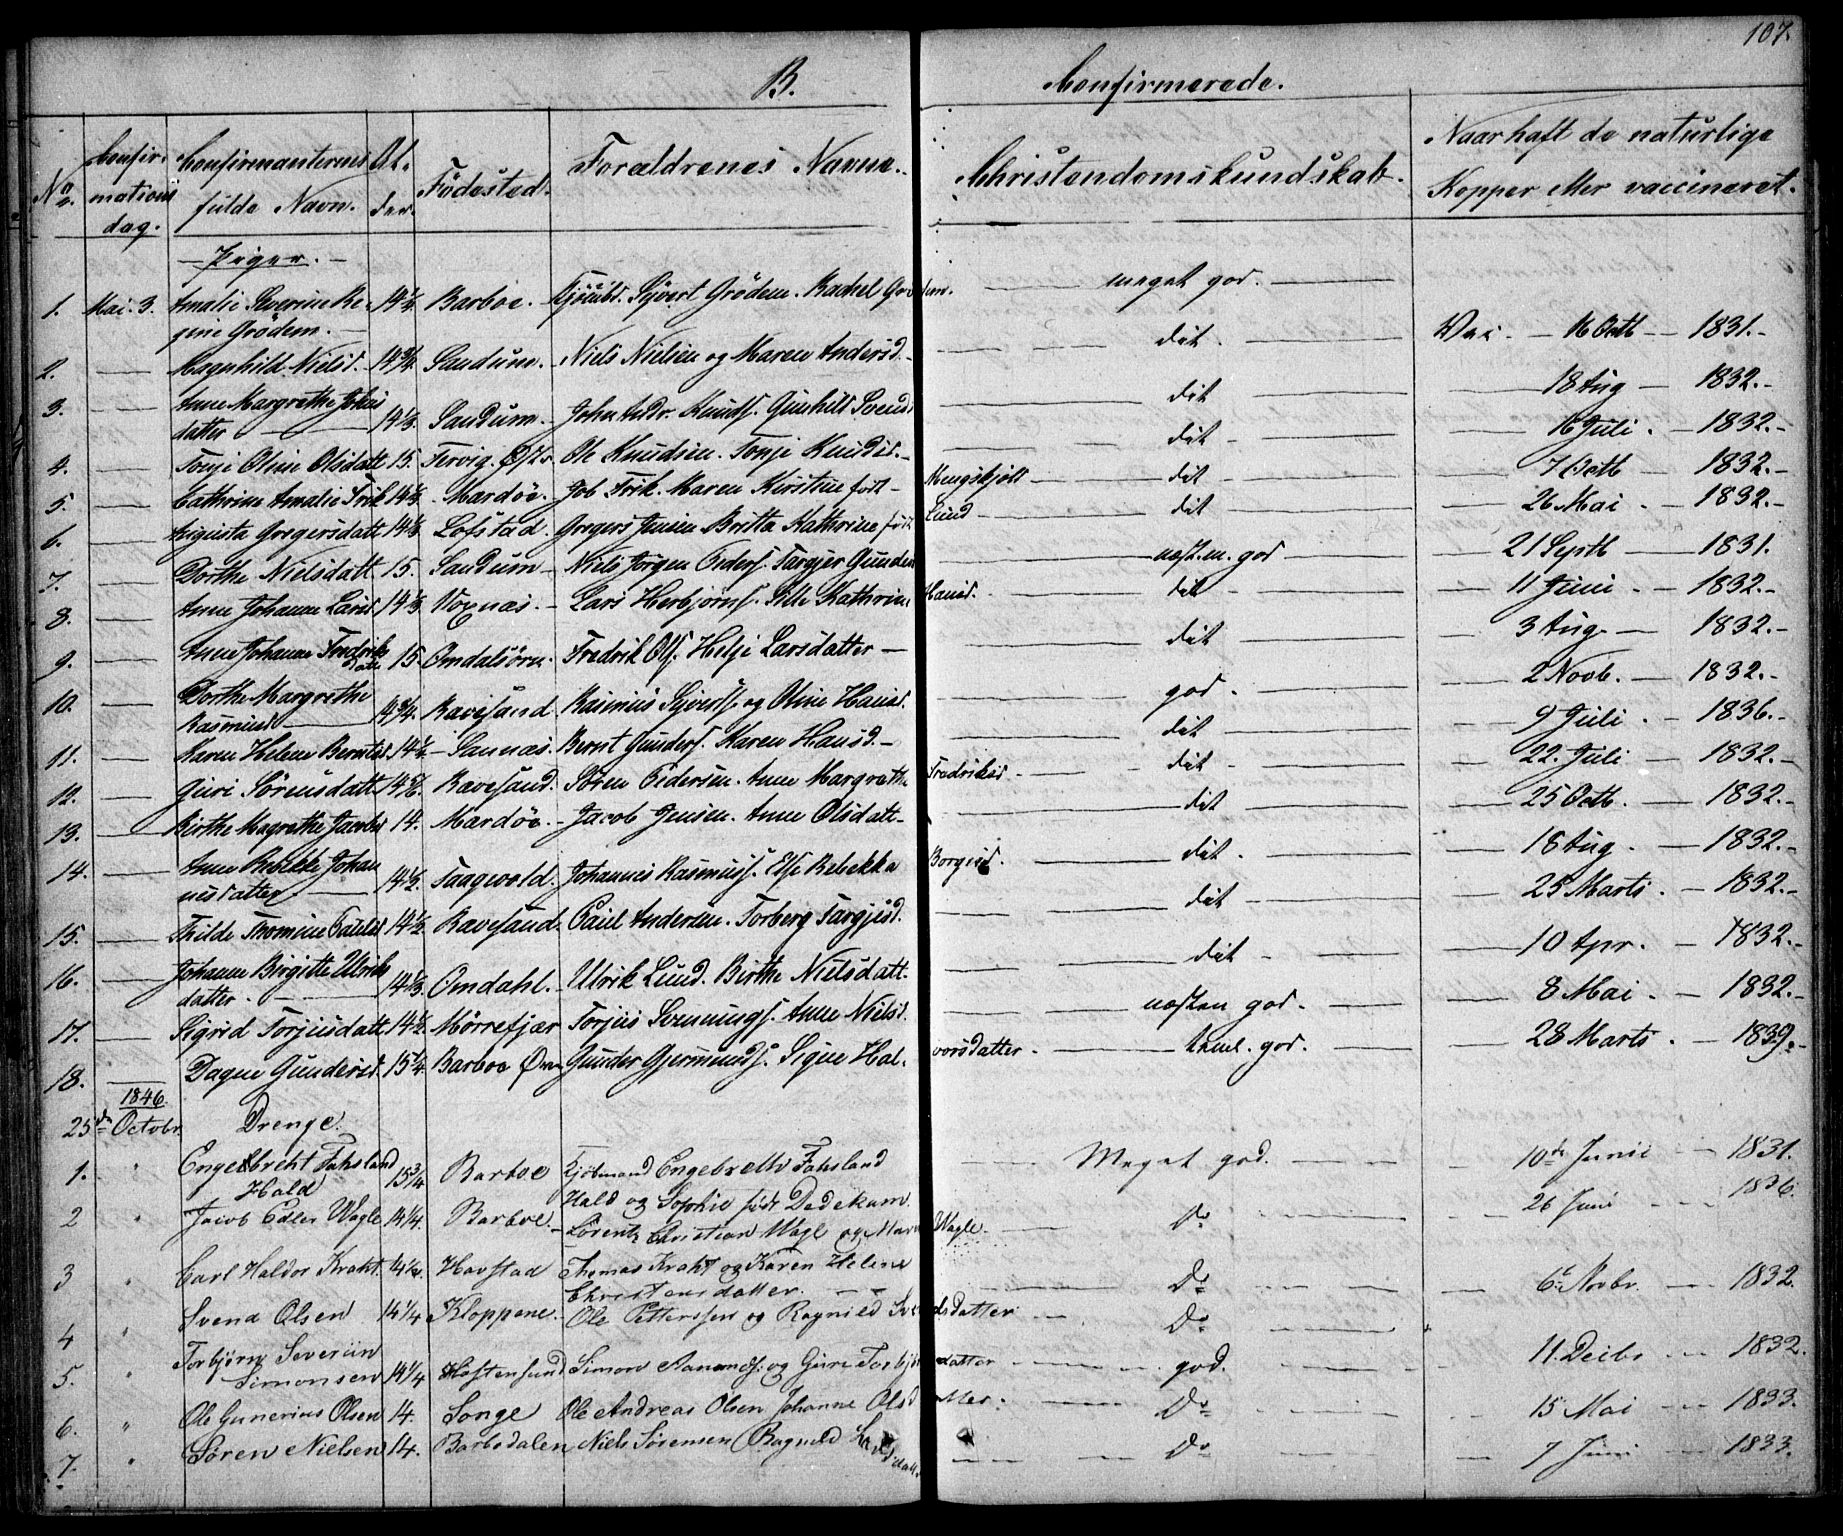 107.
B. Confirmerede.
No. Confirmations dag. Confirmanternes fulde Navn. Alder. Fødested. Forældrenes Navne. Christendomskundskab. Naar haft de naturlige Kopper eller vaccineret.
— Piger. —
1. Mai. 3. Amalie Severine Regine Grödem. 14½ Barboe. Sÿvert Grödem. Rachel meget god. Vac. — 16 Octb — 1831.
2. — Magnhild Nielsd. 14¾ Sandum. Niels Nielsen og Maren Andersd. dit. — 18 Aug — 1832.
3. — Anne Margrethe Johnsdatter 14⅓ Sandum. John Andr. Knuds. Gunhild Svends dit — 16 Juli. — 1832.
4. — Tonje Oline Olsdatt 15. Tervig. Øst Ole Knudsen. Tonje Knudsd. dit — 7 Octb — 1832.
5. — Cathrine Amalie 14⅓ Mardöe. Job Maren Kirstine født Mengskjold dit — 26 Mai — 1832.
6. — Augusta Gregersdatt 14⅓ Lofstad. Gregers Jensen Britta Kathrine født Lund dit — 21 Septb — 1831.
7. — Dorthe Nielsdatt 15. Sandum — Niels Jörgen Peders. Targjer Gunders næst.m. god — 11 Juni — 1832.
8. — Anne Johanne Larsd 14⅓ Voxnæs. — Lars Herbjörns. Sille Kathrine Hansd. dit — 3 Aug. — 1832.
9. — Anne Johanne Fredriksdatter 15 Omdalsören. Fredrik Ols. Helje Larsdatter — dit — 2 Novb. — 1832.
10. — Dorthe Margrethe Rasmusd 14¾ Ravesand Rasmus Sjverts. og Oline Hansd. god. — 9 Juli. — 1836.
11. — Maren Helene Berntsd 14¼ Sannæs. Bernt Gunders. Karen Hansd. — dit — 22. Juli — 1832.
12. — Guri Sörensdatt 14 Ravesand. Sören Pedersen. Anne Margrethe Fredriksd — dit — 25 Octb. — 1832.
13. — Birthe Magrethe Jacobsd 14. Mardöe. — Jacob Jensen. Anne Olsdatt — dit — 18 Aug. — 1832.
14. — Anne Rebekke Johannesdatter 14½ Saagvold. Johannes Rasmuss. Else Rebekka dit. — 25 Marts. — 1832.
15. — Thilde Thomine Paulsd 14½ Ravesand. Paul Andersen. Torberg Targjesd. dit — 10 Apr. — 1832.
16. — Johanne Birgitte Ulriksdatter. 14⅓ Omdahl. Ulrik Lund. Birthe Nielsdatt. dit — 8 Mai. — 1832.
17. — Sigrid Torjusdatt 14½ Mörrefjær Torjus Svennungs. Anne Nielsd. næsten god. — 28 Marts. — 1839.
18. — Dagne Gundersd 15¼ Barboe Gunder Gjermunds. Signe Halvorsdatter. — temel. god.
1846.
25de Octobr. Drenge.
1. " Engelbreht Fahsland Hald 15¾ Barboe Kjöbmand Engebreth Fahsland Hald og Sophie født Dedekam. Meget god. 10de Junii — 1831.
2 " Jacob Edler Wagle 14¼ Barboe. Lörentz Christian Wagle og Maren Wagle. Do 26 Juni — 1836.
3 " Carl Haldor Kraht. 14¼ Havstad Thomas Kraht og Karen Heline Christensdatter. Do 6te Novbr. — 1832.
4 " Svend Olsen 14¼ Kloppene. Ole Petterssen og Ragnild Svendsdatter Do 11. Decbr — 1832.
5. " Torbjörn Severiin Simonsen 14¼ Hæstensund Simon Aanonds. og Guri Torbjörnsdatter god. 15 Mai — 1833.
6. " Ole Gunerius Olsen 14. Songe Ole Andreas Olsen Johanne Olsdatter. Do 7 Juni — 1833.
7. " Sören Nielsen 14. Barbodalen Niels Sörensen Ragnild Do